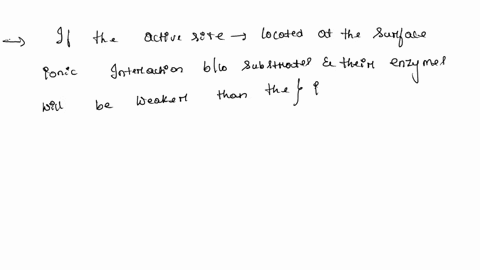 → If the active site → located at the surface
ionic Interaction b/w substrates & their enzymes
will be weaker than the